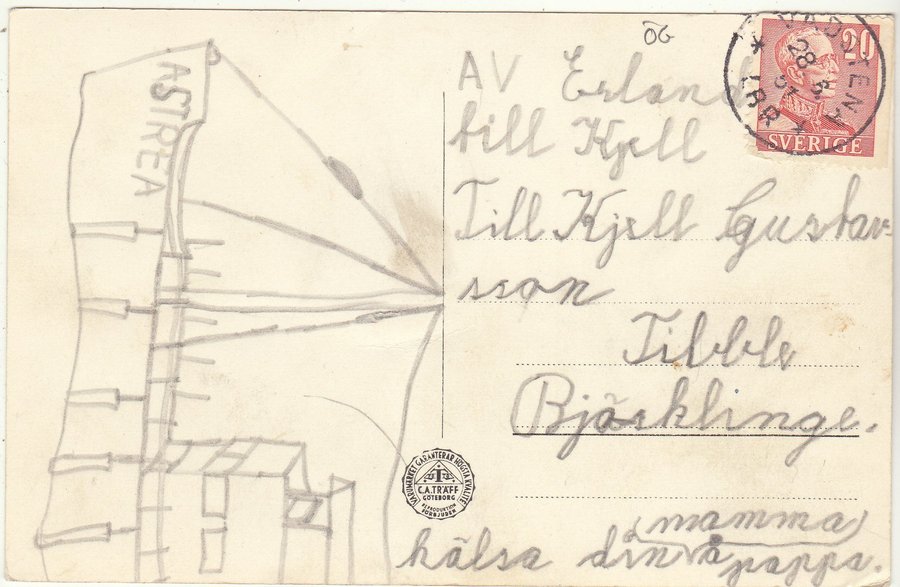 ÖG
AV Erland
till Kjell
Till Kjell Gustav-
sson
Tibble
Björklinge.
mamma
hälsa din å pappa.
ASTREA
20
SVERIGE
VADSTENA
28
LBR
VARUMÄRKET GARANTERAR HÖGSTA KVALITÉ
C.A. TRÄFF
GÖTEBORG
REPRODUKTION
FÖRBJUDEN